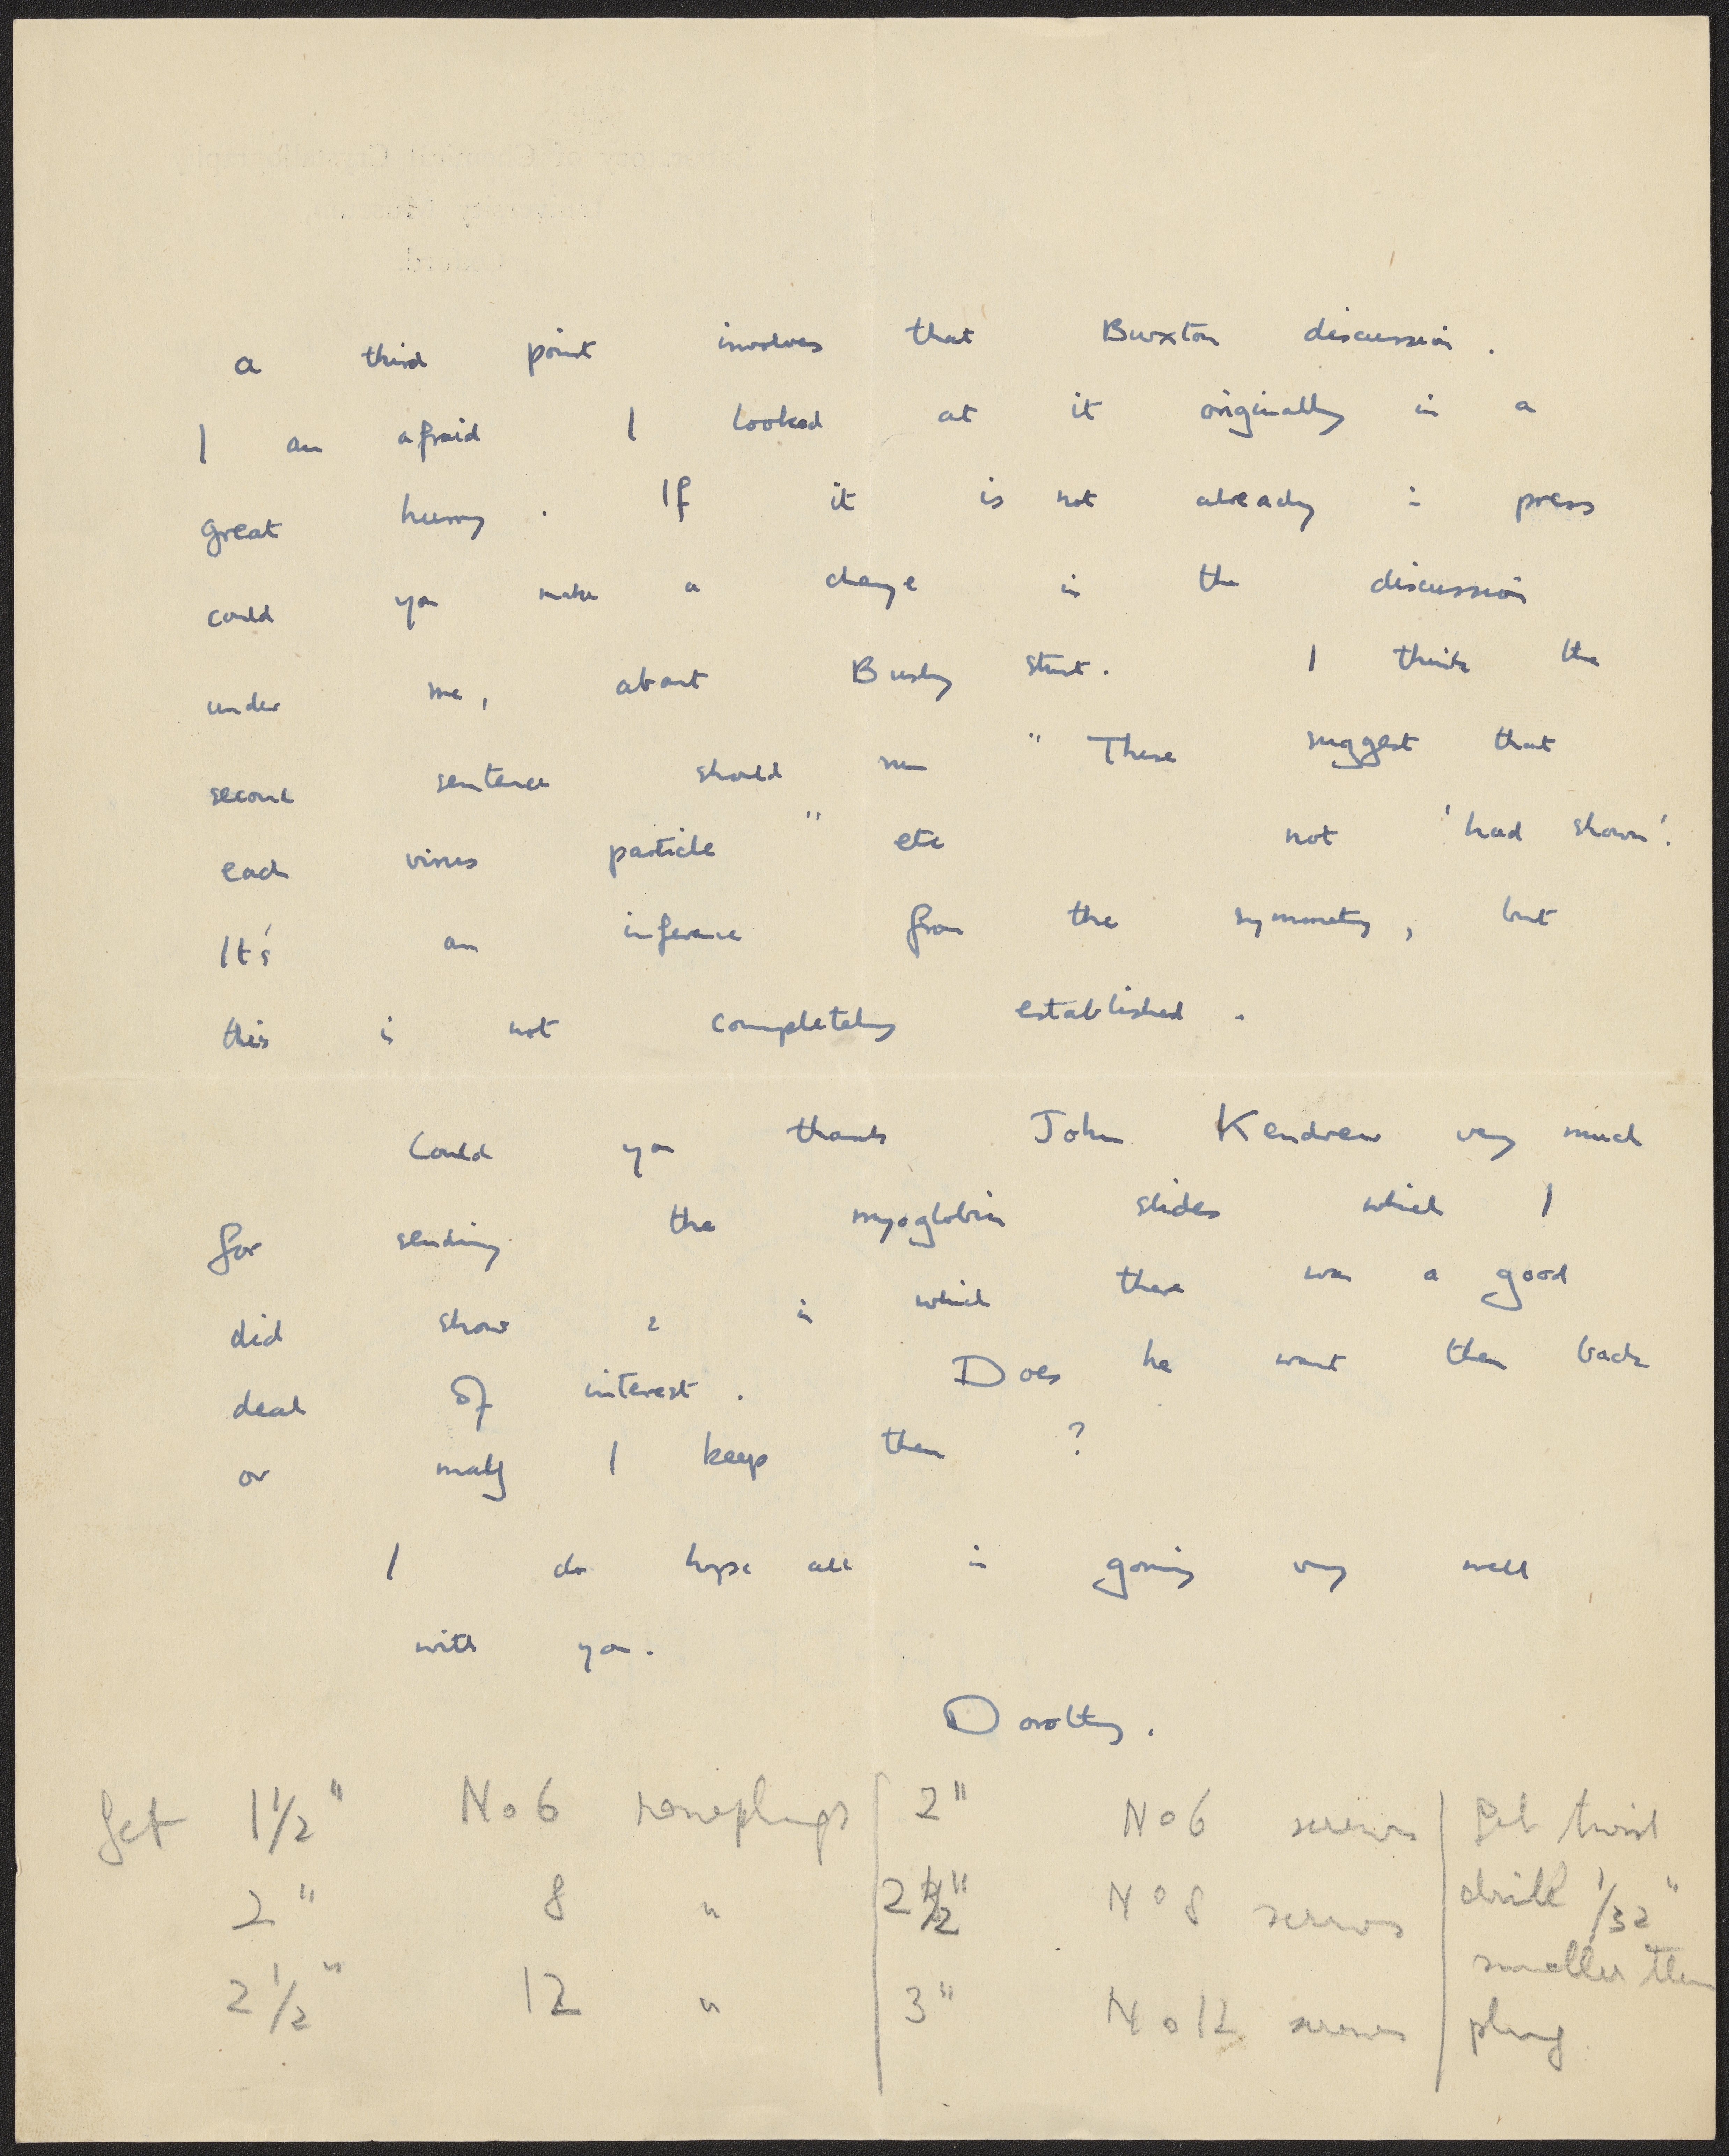 a third point involves that Buxton discussion.
I am afraid I looked at it originally in a
great hurry. If it is not already in press
could you make a change in the discussion
under me, about Bushy stunt. I think the
second sentence should run "These suggest that
each virus particle" etc not 'had shown'.
It's an inference from the symmetry, but
this is not completely established.
Could you thank John Kendrew very much
for sending the myoglobin slides which I
did show & in which there was a good
deal of interest. Does he want them back
or may I keep them?
I do hope all is going very well
with you.
Dorothy.
Get 1½" No 6 rawplugs | 2" No 6 screws | Get twist
2" 8 " | 2½" No 8 screws | drill 1/32"
smaller then
2½" 12 " | 3" No 12 screws | plug